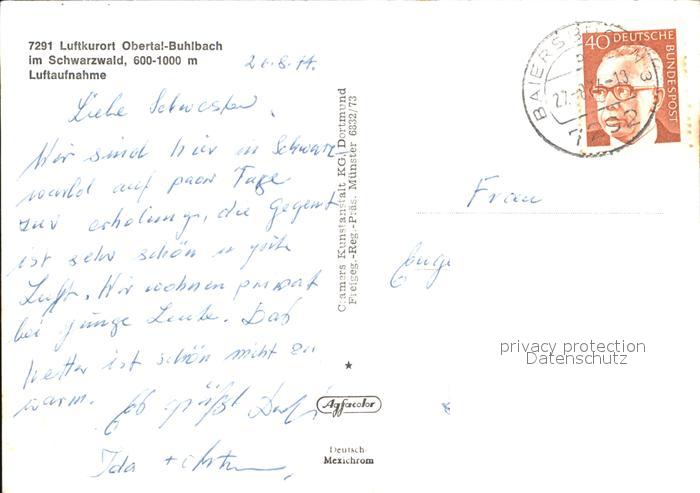 7291 Luftkurort Obertal-Buhlbach
im Schwarzwald, 600-1000 m
Luftaufnahme
Liebe Schwester,
Wir sind hier in Schwarz
wald auf paar Tage
zur erholung, die Gegent
ist sehr schön u gute
Luft. Wir wohnen privat
bei junge Leute. Das
wetter ist schön nicht zu
warm. Es grüßt Dich
Ida +
Cramers Kunstanstalt KG. Dortmund
Freigeg.-Reg.-Präs. Münster 6832/73
Agfacolor
Deutsch-
Mexichrom
40 DEUTSCHE
BUNDESPOST
BAIERSBRONN 3
Frau
privacy protection
Datenschutz